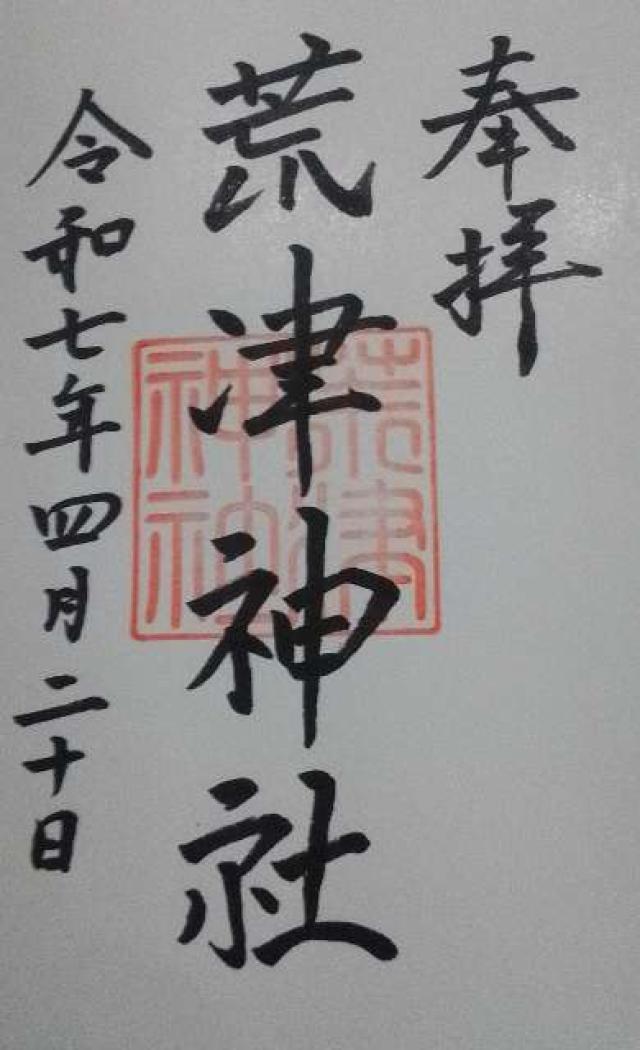 奉拝
荒津神社
荒津
神社
令和七年四月二十日